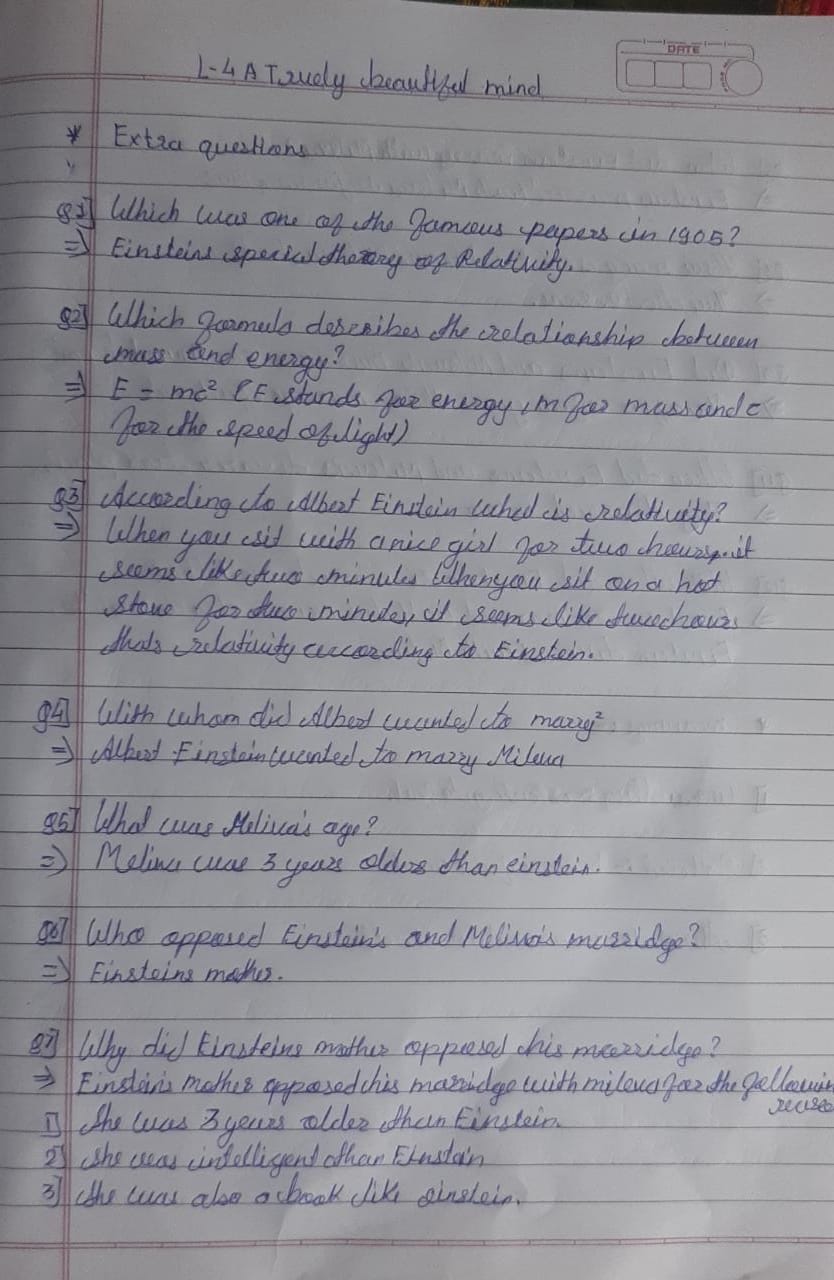 DATE
L-4 A Truely beautiful mind
* Extra questions
Q1] Which was one of the famous papers in 1905?
⇒ Einsteins special theory of Relativity.
Q2] Which formula describes the relationship between
mass and energy?
⇒ E = mc² (E stands for energy, m for mass and c
for the speed of light)
Q3] According to Albert Einstein whed is relativity?
⇒ When you sit with a nice girl for two hours, it
seems like two minutes When you sit on a hot
stove for two minutes, it seems like two hours
thats relativity according to Einstein.
Q4] With whom did Albert wanted to marry?
⇒ Albert Einstein wanted to marry Mileva
Q5] What was Meliva's age?
⇒ Meliva was 3 years olders than einstein.
Q6] Who opposed Einstein's and Meliva's marridge?
⇒ Einsteins mother.
Q7] Why did Einsteins mother opposed his marridge?
⇒ Einstein's mother opposed his marridge with mileva for the followin
1] She was 3 years older than Einstein.
2] She was intelligent than Einstain
3] She was also a book like einstein.